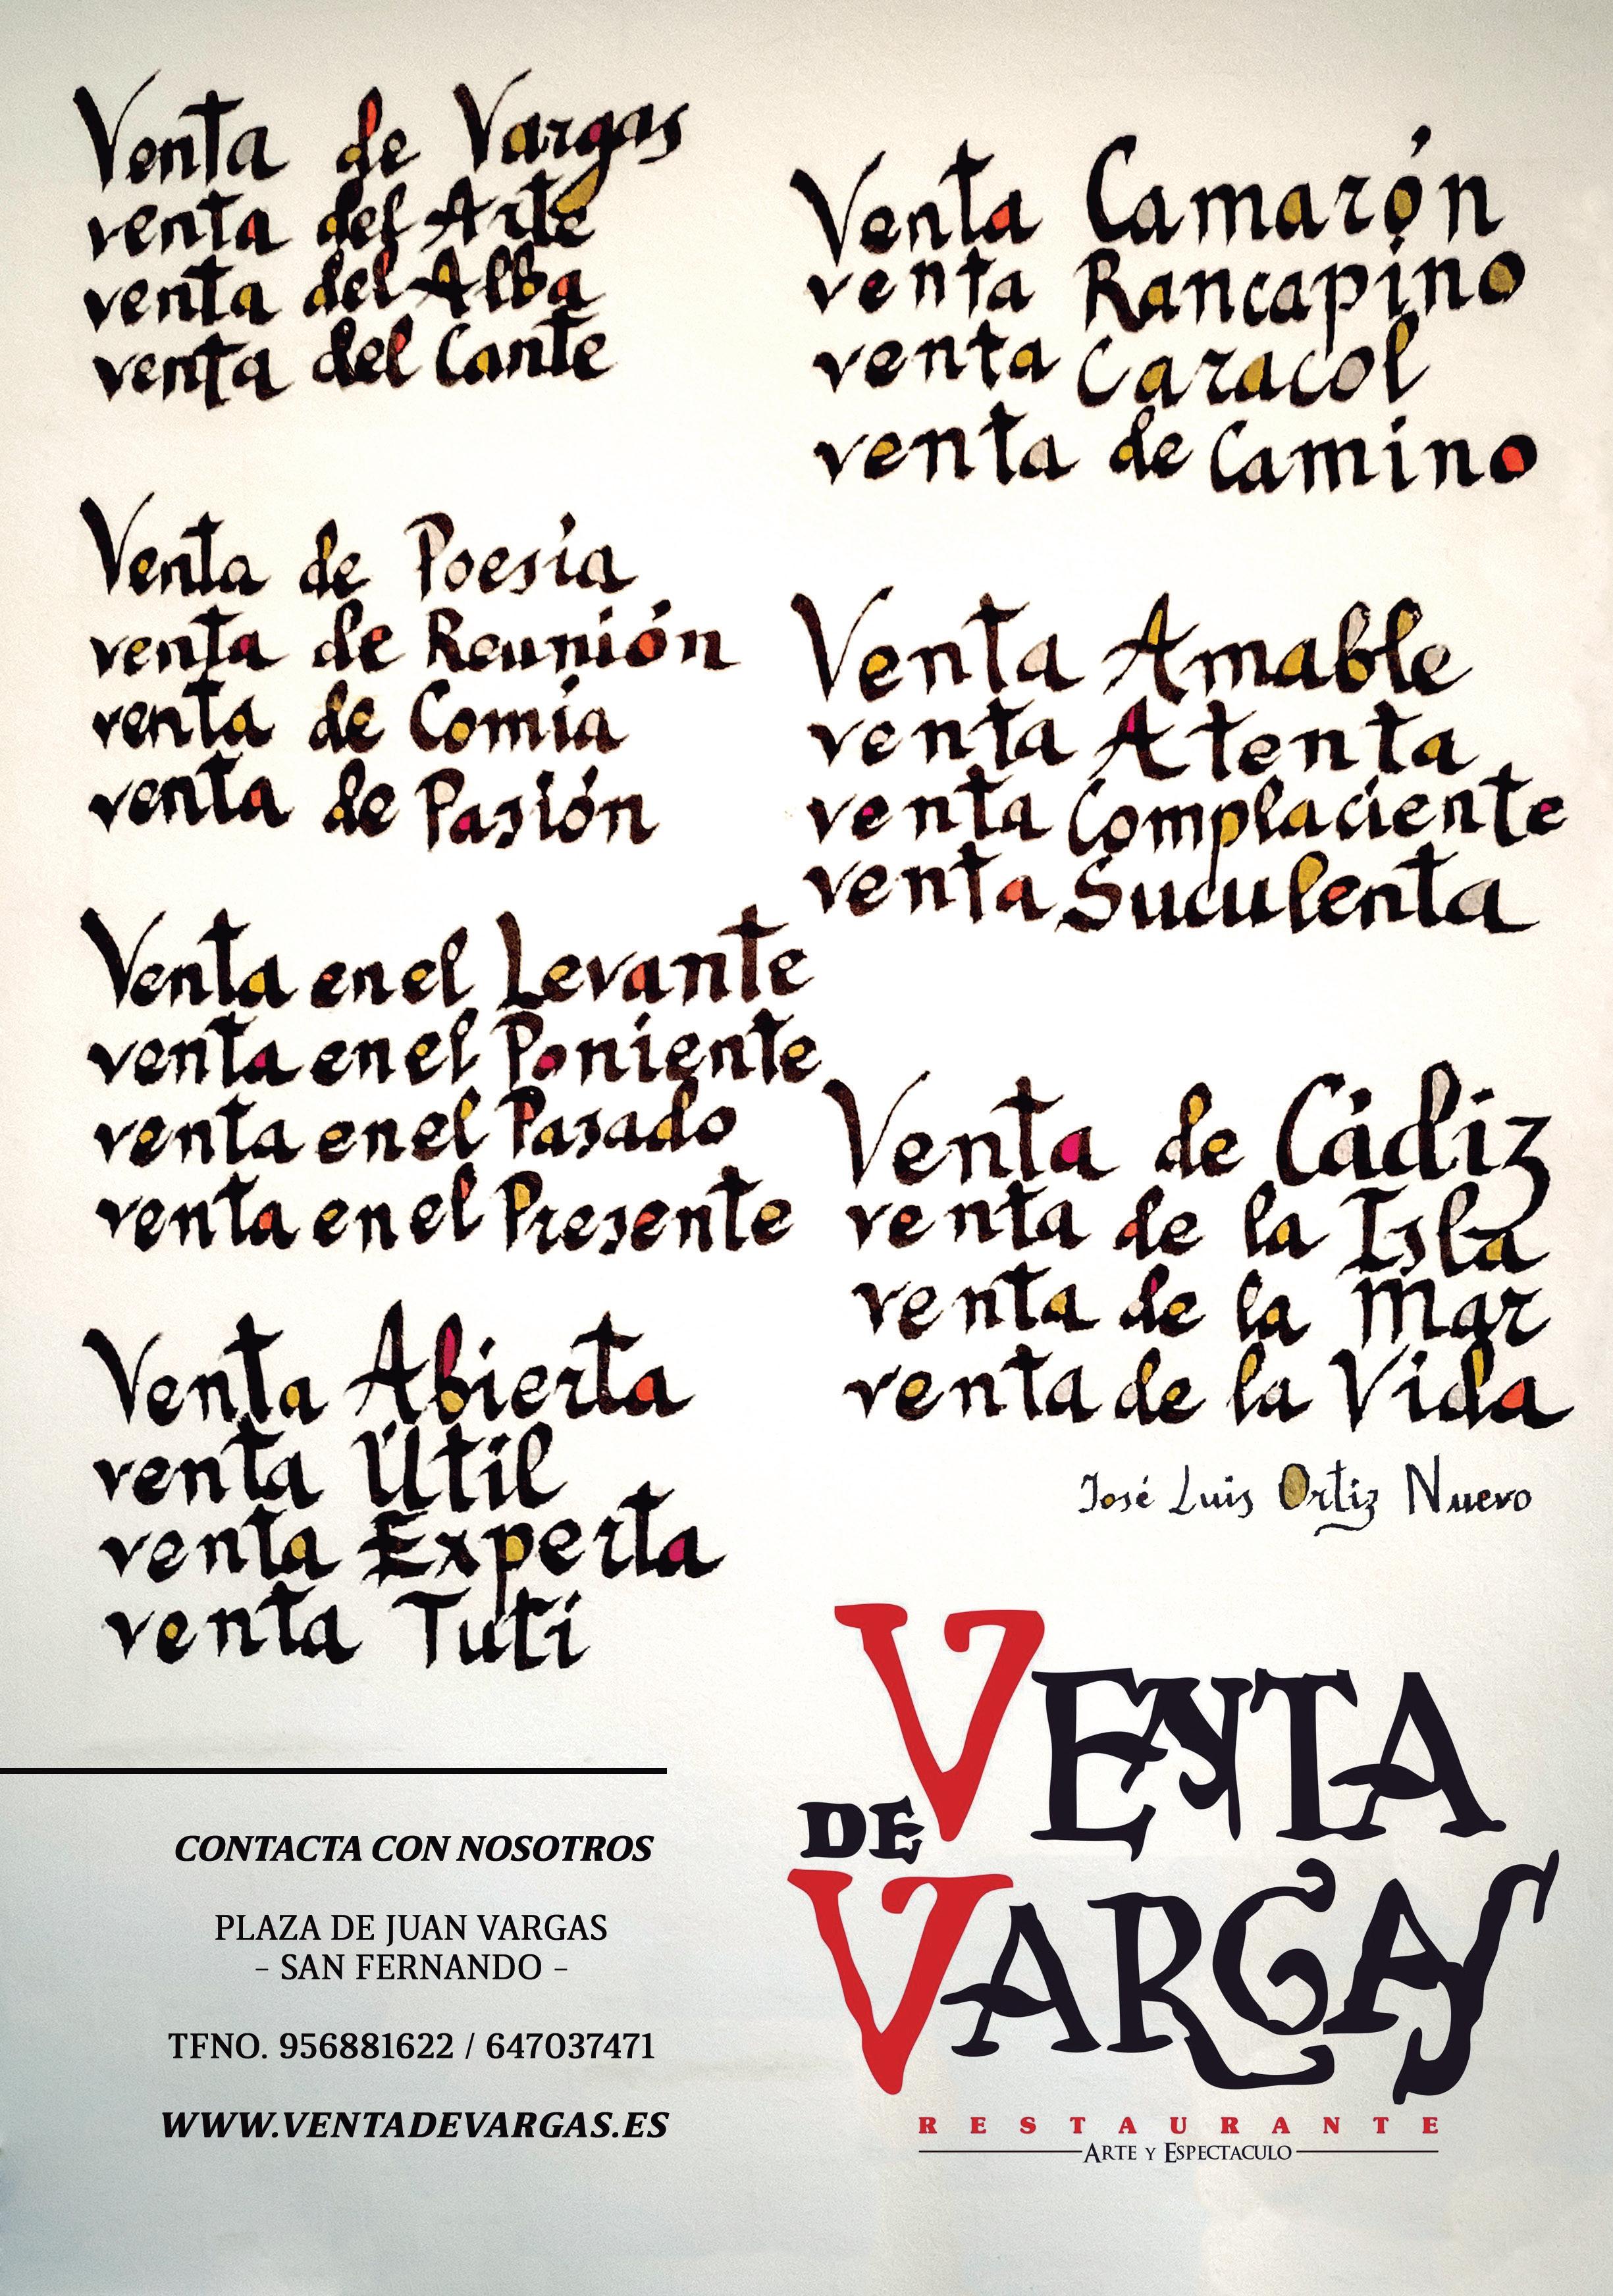 Venta de Vargas
venta del Arte
venta del Alba
venta del Cante
Venta de Poesía
venta de Reunión
venta de Comía
venta de Pasión
Venta en el Levante
venta en el Poniente
venta en el Pasado
venta en el Presente
Venta Abierta
venta Útil
venta Experta
venta Tuti
Venta Camarón
venta Rancapino
venta Caracol
venta de Camino
Venta Amable
venta Atenta
venta Complaciente
venta Suculenta
Venta de Cádiz
venta de la Isla
venta de la Mar
venta de la Vida
José Luis Ortiz Nuevo
CONTACTA CON NOSOTROS
PLAZA DE JUAN VARGAS
- SAN FERNANDO -
TFNO. 956881622 / 647037471
WWW.VENTADEVARGAS.ES
VENTA
DE
VARGAS
RESTAURANTE
ARTE Y ESPECTACULO